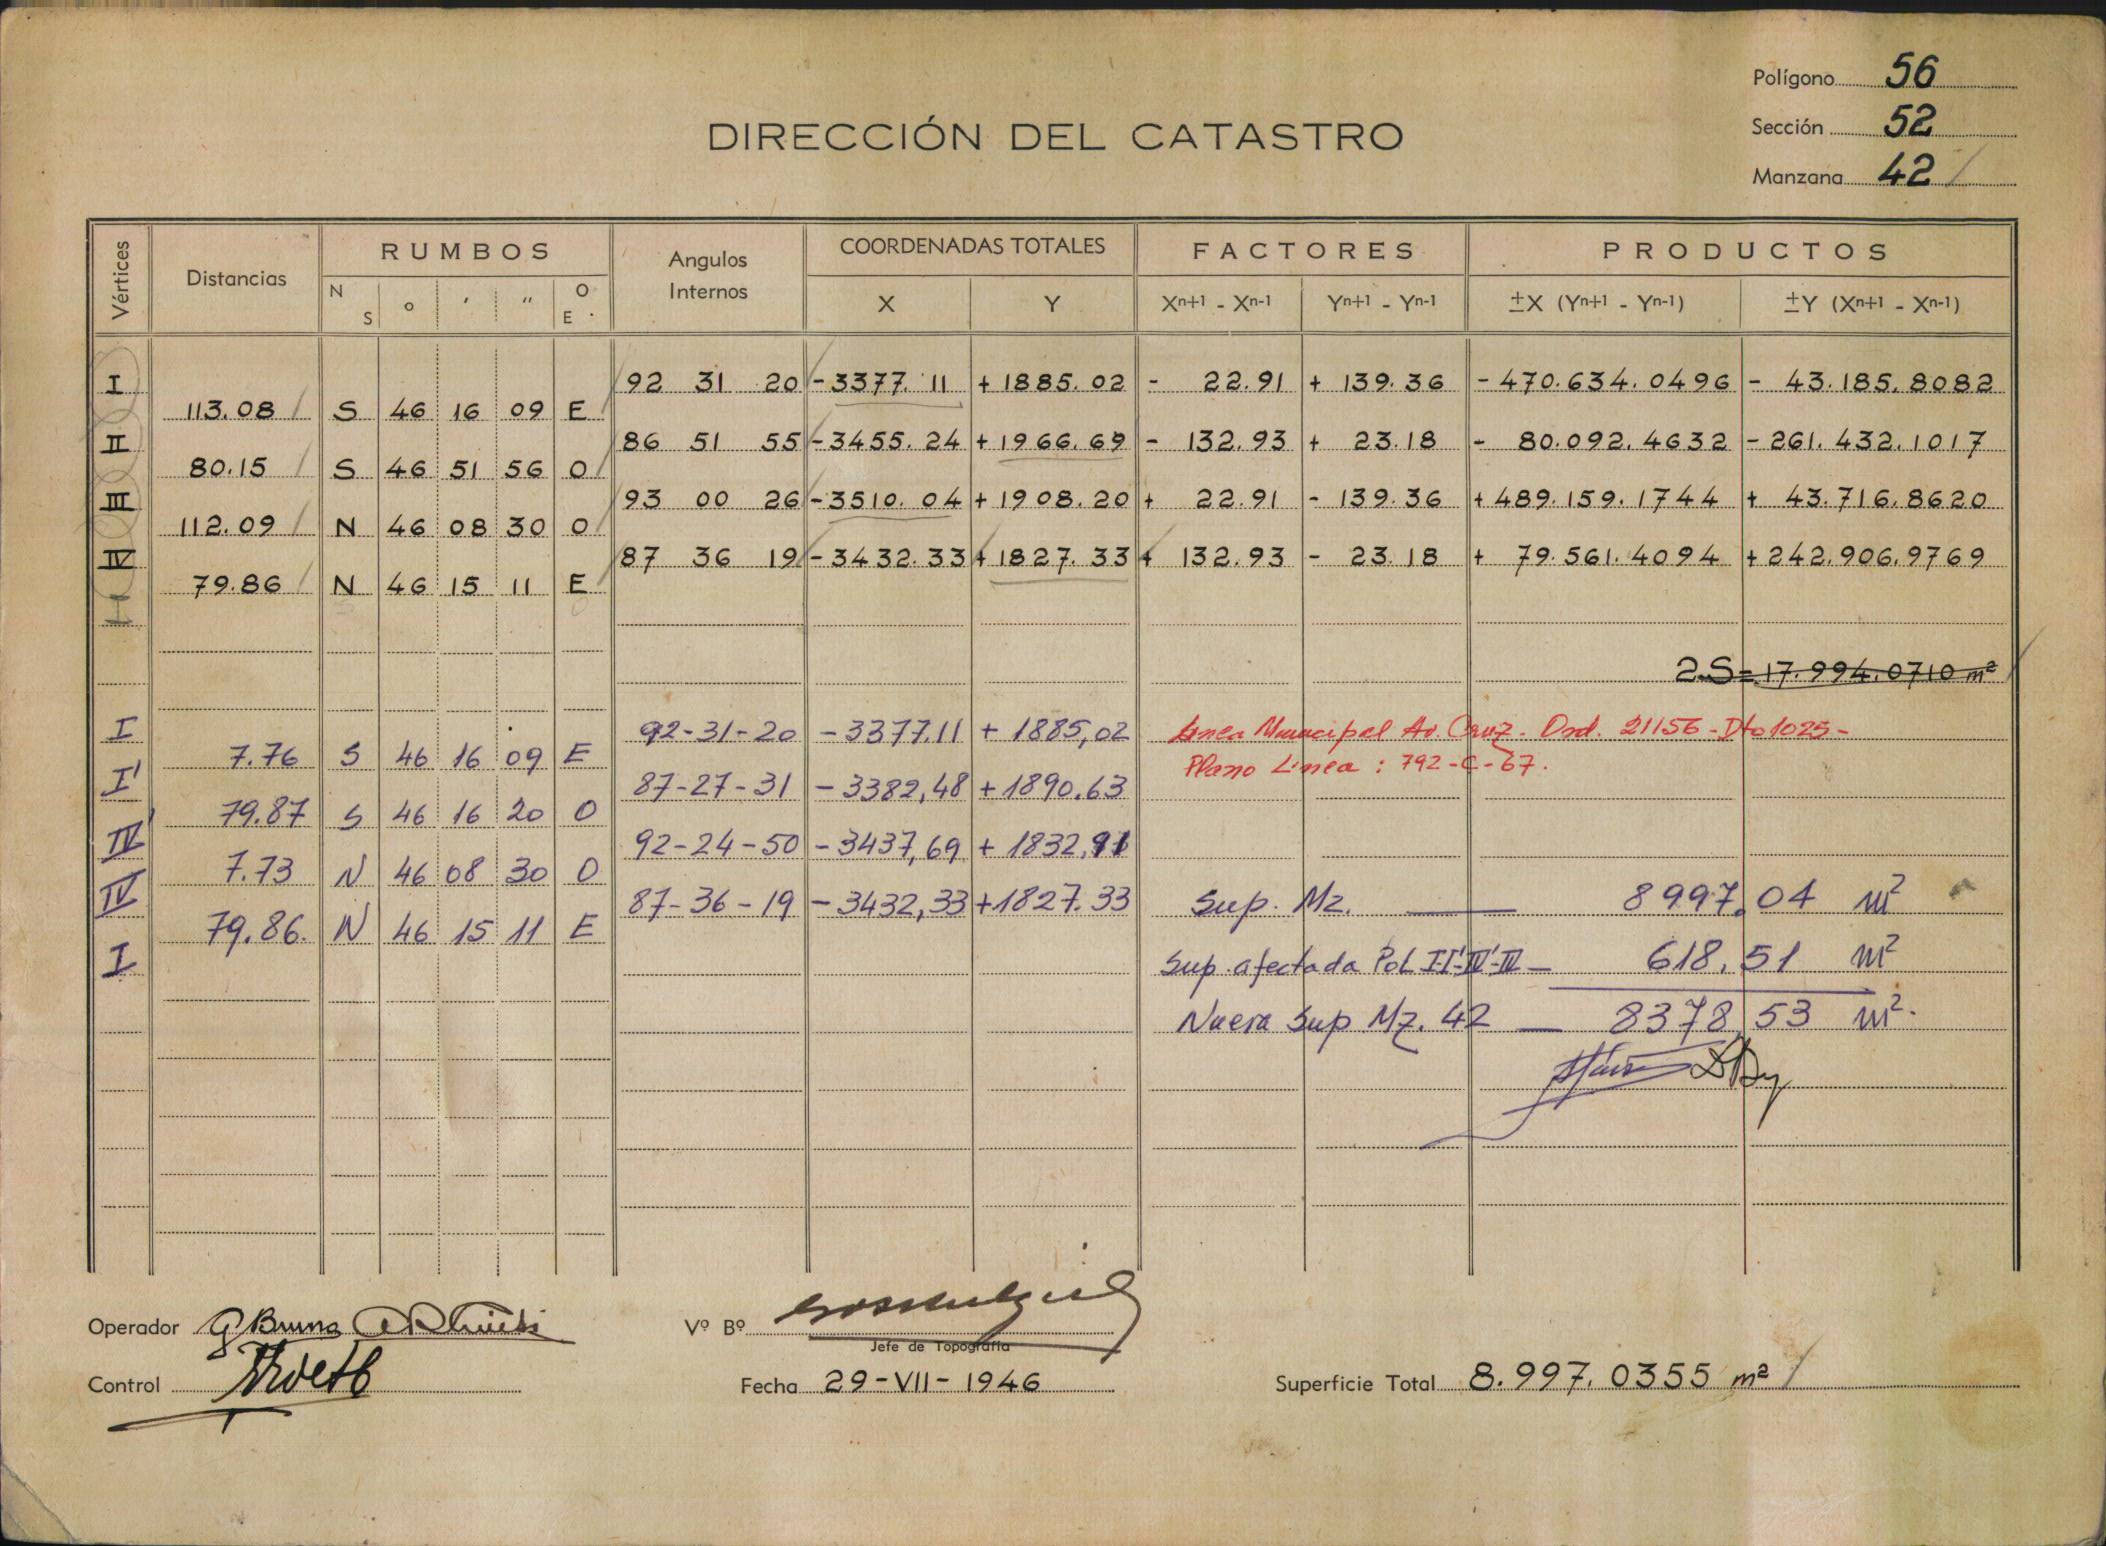 Polígono 56
DIRECCIÓN DEL CATASTRO
Sección 52
Manzana 42
Vértices Distancias RUMBOS Angulos Internos COORDENADAS TOTALES FACTORES PRODUCTOS
N S o ′ ″ O E X Y Xn+1 - Xn-1 Yn+1 - Yn-1 ±X (Yn+1 - Yn-1) ±Y (Xn+1 - Xn-1)
I 92 31 20 -3377.11 +1885.02 - 22.91 + 139.36 -470.634.0496 - 43.185.8082
113.08 S 46 16 09 E
II 86 51 55 -3455.24 +1966.69 - 132.93 + 23.18 - 80.092.4632 -261.432.1017
80.15 S 46 51 56 O
III 93 00 26 -3510.04 +1908.20 + 22.91 - 139.36 +489.159.1744 + 43.716.8620
112.09 N 46 08 30 O
IV 87 36 19 -3432.33 +1827.33 + 132.93 - 23.18 + 79.561.4094 +242.906.9769
79.86 N 46 15 11 E
I
2.S=17.994.0710 m²
I 92-31-20 -3377.11 + 1885,02 Linea Municipal Av. Cruz. Ord. 21156-Dto1025-
7.76 S 46 16 09 E Plano Linea : 792-C-67.
I' 87-27-31 -3382,48 +1890.63
79.87 S 46 16 20 O
IV' 92-24-50 -3437,69 + 1832,91
7.73 N 46 08 30 O
IV 87-36-19 -3432,33 +1827.33 Sup. Mz. — 8997,04 m²
79.86. N 46 15 11 E
I Sup. afectada Pol. I-I'-IV'-IV — 618,51 m²
Nueva Sup Mz. 42 — 8378,53 m².
Operador G Bruno
Vº Bº
Jefe de Topografía
Control
Fecha 29-VII-1946
Superficie Total 8.997.0355 m²